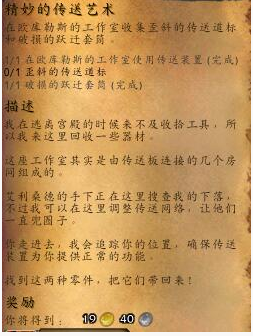 精妙的传送艺术
在欧库勒斯的工作室收集歪斜的传送道标
和破损的跃迁套筒。
1/1 在欧库勒斯的工作室使用传送装置 (完成)
0/1 歪斜的传送道标
1/1 破损的跃迁套筒 (完成)
描述
我在逃离宫殿的时候来不及收拾工具，所
以我来这里回收一些器材。
这座工作室其实是由传送板连接的几个房
间组成的。
艾利桑德的手下正在这里搜查我的下落，
不过我可以在这里调整传送网络，让他们
一直兜圈子。
你走进去，我会追踪你的位置，确保传送
装置为你提供正常的功能。
找到这两种零件，把它们带回来！
奖励
你将得到： 19 40